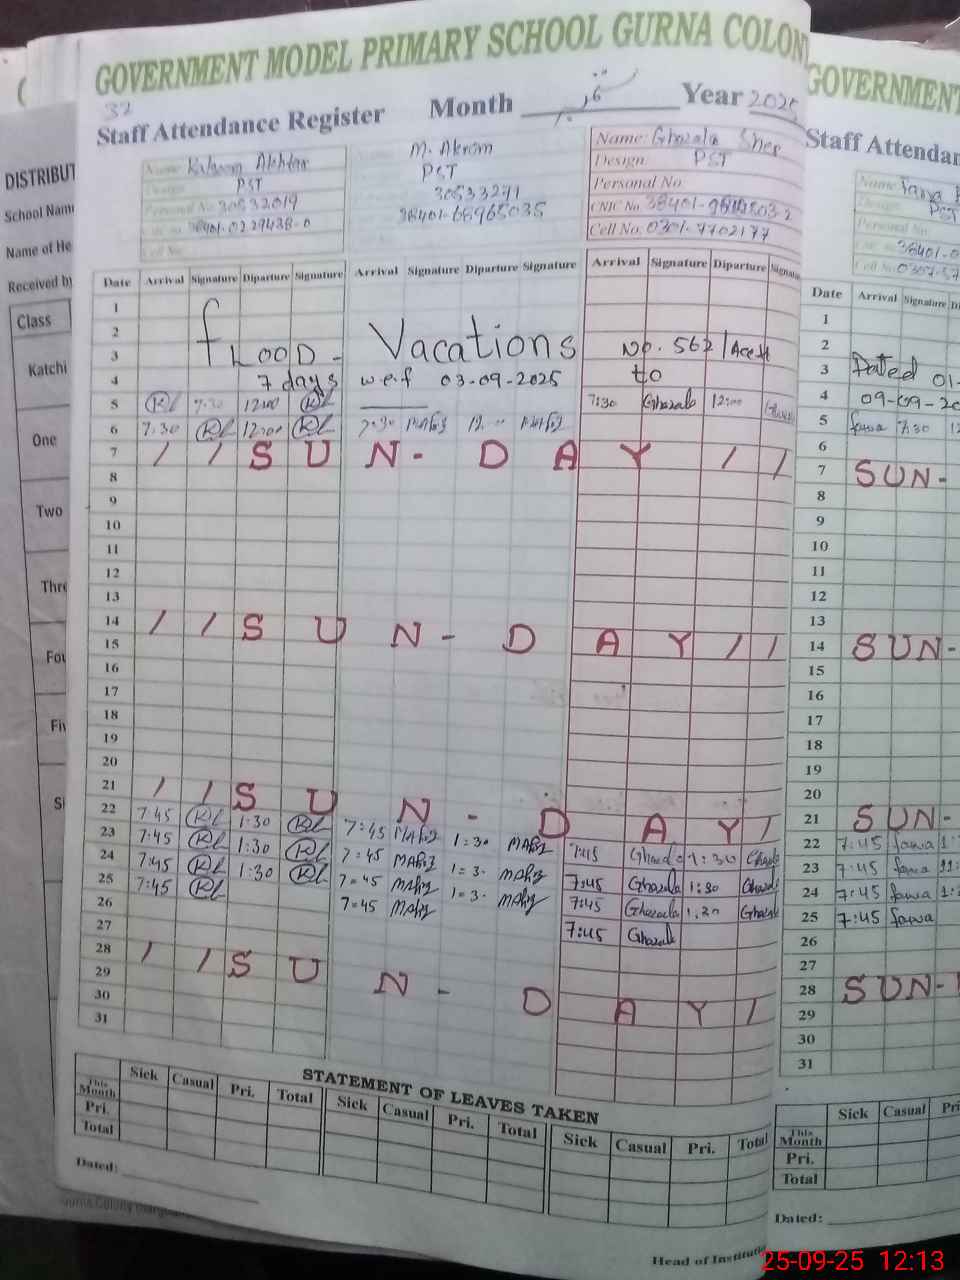 GOVERNMENT MODEL PRIMARY SCHOOL GURNA COLON
32
Staff Attendance Register Month ستمبر Year 2025
Name: Kalsoom Akhtar
Design: PST
Personal No. 30532019
38401-0229438-0
Cell No.
M. Akram
PST
30533271
38401-6896503-5
Name: Ghazala Sher
Design: PST
Personal No.
CNIC No. 38401-
Cell No. 0301-7702177
Date Arrival Signature Diparture Signature Arrival Signature Diparture Signature Arrival Signature Diparture Signature
1
2
3 FLOOD - Vacations No. 562/Acctt
4 7 days w.e.f 03-09-2025 to
5 7:30 12:00 7:30 Ghazala 12:00 Ghazala
6 7:30 12:00 7:30 12:00
7 / / S U N - D A Y / /
8
9
10
11
12
13
14 / / S U N - D A Y / /
15
16
17
18
19
20
21 / / S U N - D A Y /
22 7:45 1:30 7:45 1:30 7:45 Ghazala 1:30 Ghazala
23 7:45 1:30 7=45 1=3. 7:45 Ghazala 1:30 Ghazala
24 7:45 1:30 7=45 1=3. 7:45 Ghazala 1:30 Ghazala
25 7:45 7=45 7:45 Ghazala
26
27
28 / / S U N - D A Y /
29
30
31
STATEMENT OF LEAVES TAKEN
Sick Casual Pri. Total Sick Casual Pri. Total Sick Casual Pri. Total
This Month
Pri.
Total
Dated:
Head of Instituti
GOVERNMENT
Staff Attendar
Name:
PST
Personal No.
38401-0
Cell No. 0307-57
Date Arrival Signature
1
2
3 Dated 01-
4 09-09-20
5 7:30 12
6
7 SUN-
8
9
10
11
12
13
14 SUN-
15
16
17
18
19
20
21 SUN-
22 7:45
23 7:45
24 7:45
25 7:45
26
27
28 SUN-
29
30
31
Sick Casual Pri
This Month
Pri.
Total
Dated:
DISTRIBUT
School Nam
Name of He
Received by
Class
Katchi
One
Two
Thre
Fou
Fiv
Si
25-09-25 12:13